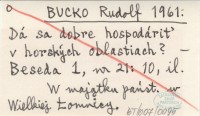 BUCKO Rudolf 1961:
Dá sa dobre hospodáriť
v horských oblastiach? –
Beseda 1, no 21: 10, il.
W majątku państ. w
Wielkiej Łomnicy.